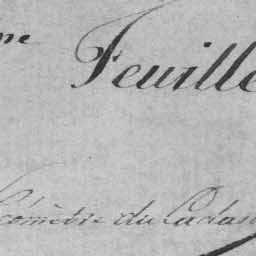 me Feuille
éomètre du Cadas